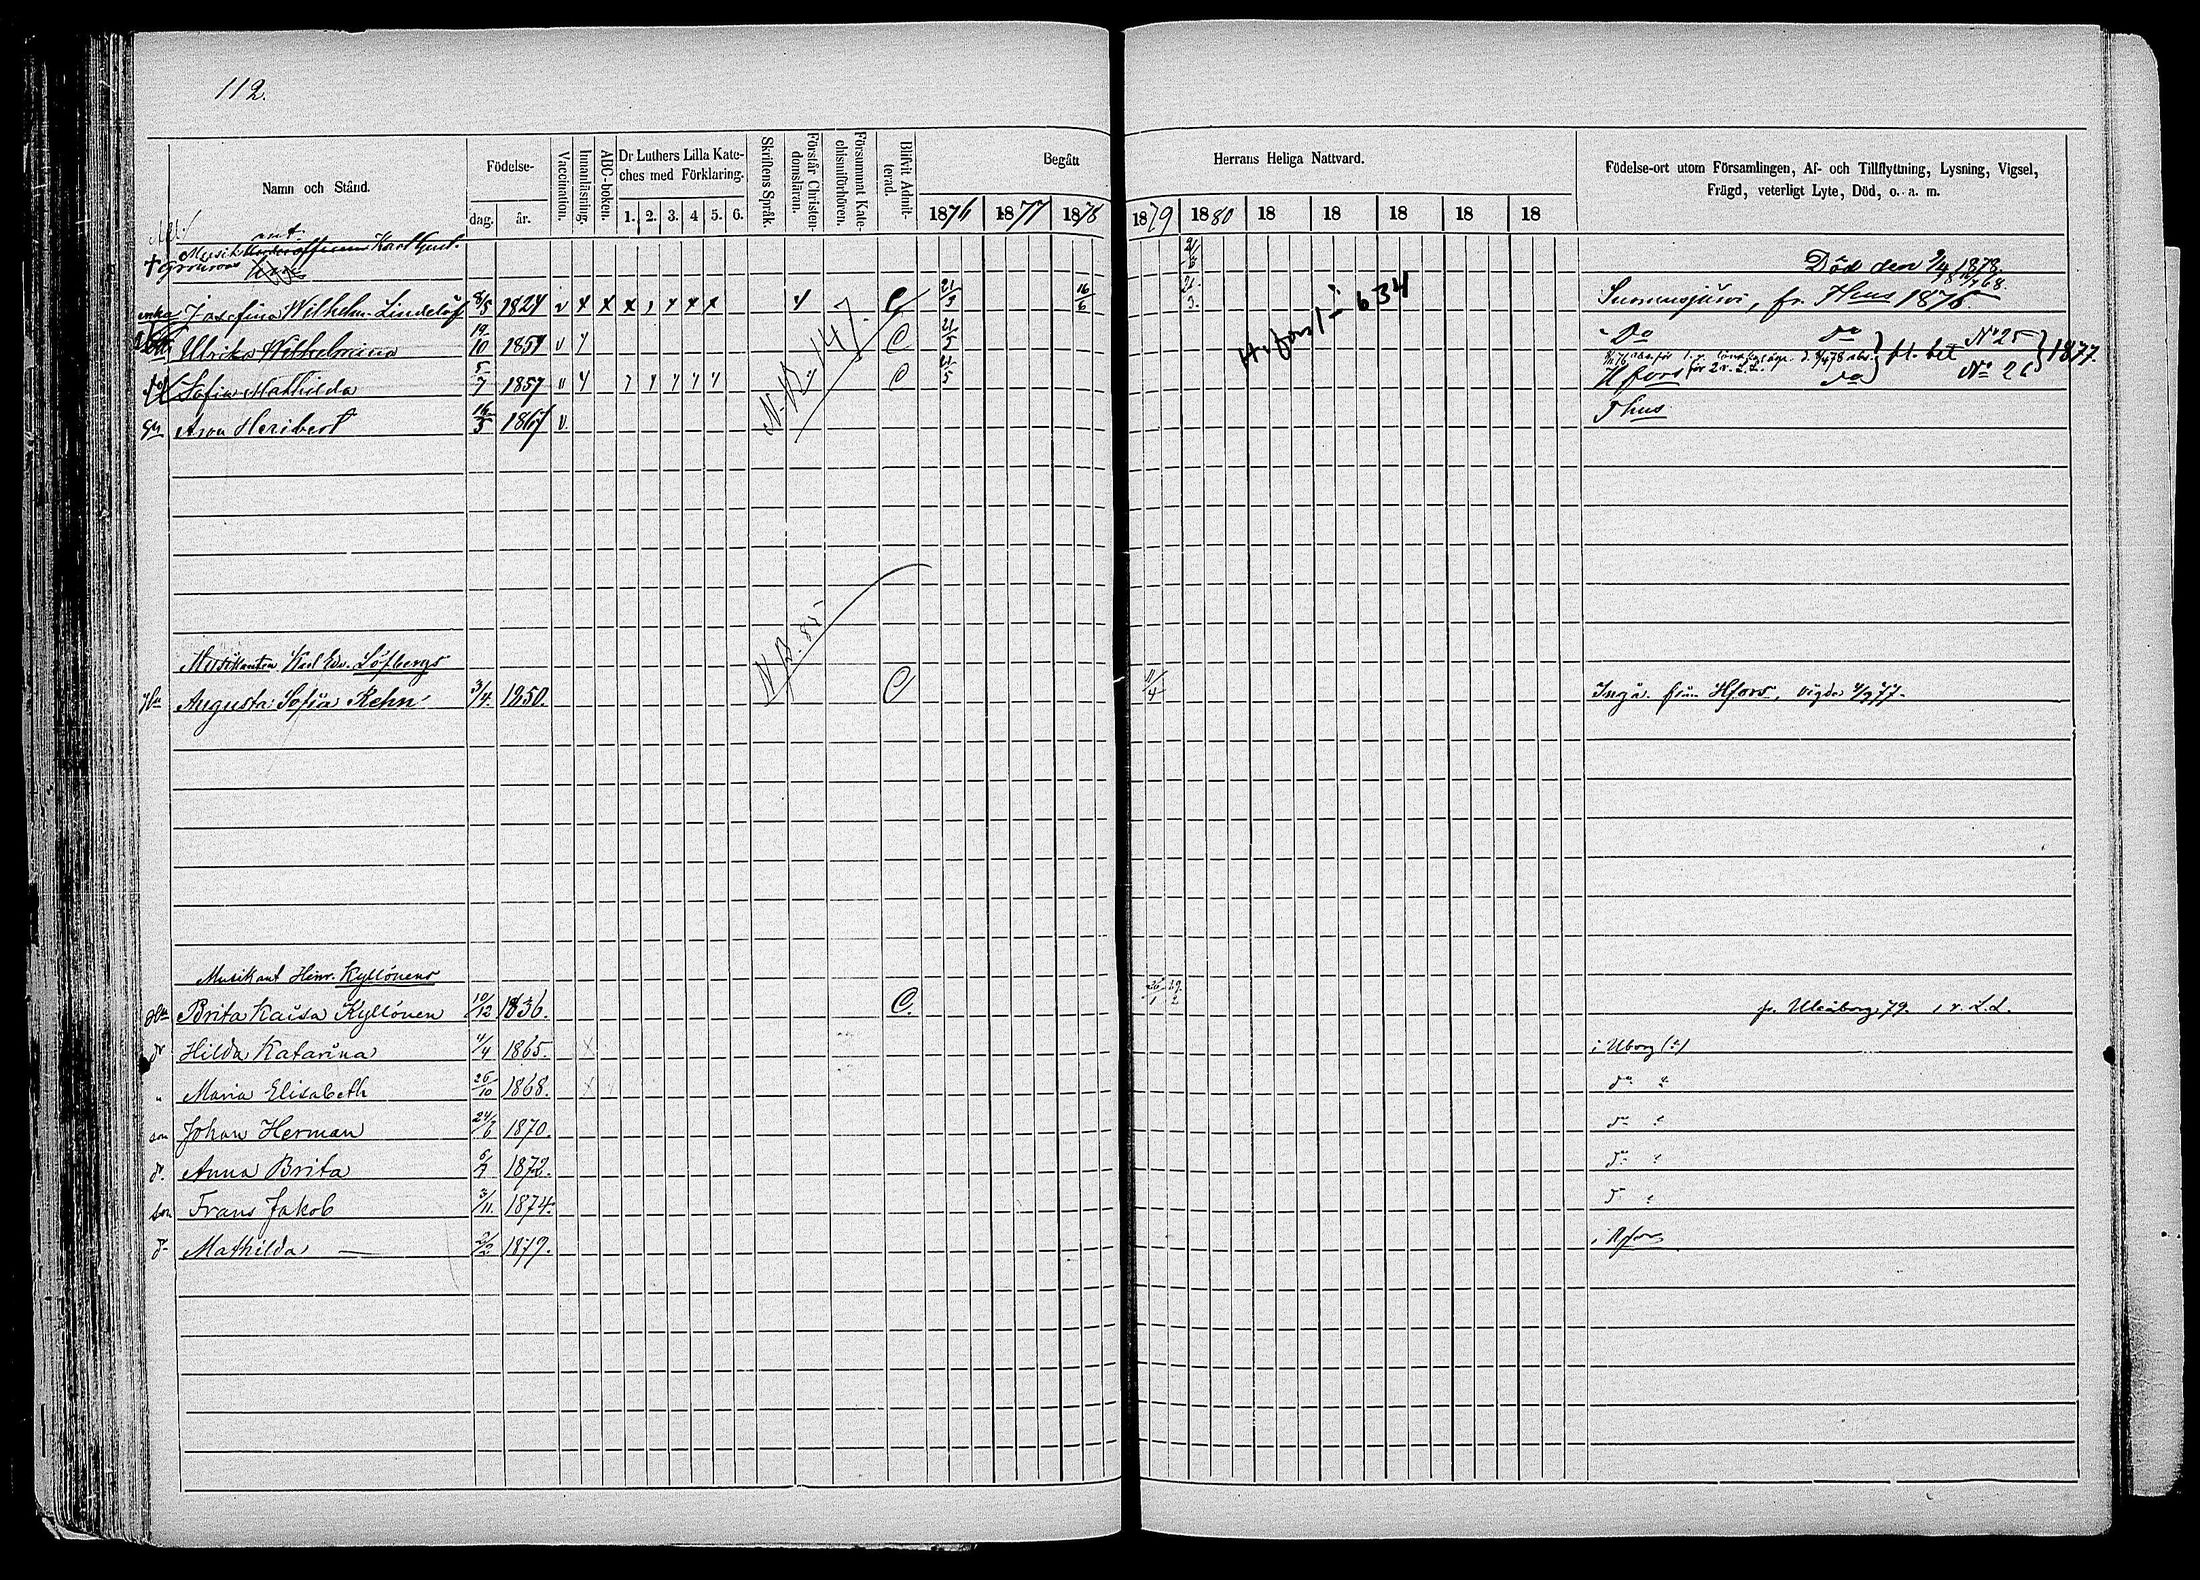 112.
Namn och Stånd.
Födelse-
dag. år.
Vaccination.
Innanläsning.
ABC-boken.
Dr Luthers Lilla Kate-
ches med Förklaring.
1. 2. 3. 4 5. 6.
Skriftens Språk.
Förstår Christen-
domsläran.
Försummat Kate-
chismiförhören.
Blifvit Admit-
terad.
Begått Herrans Heliga Nattvard.
1876 1877 1878 1879 1880 18 18 18 18 18
Födelse-ort utom Församlingen, Af- och Tillflyttning, Lysning, Vigsel,
Frägd, veterligt Lyte, Död, o. a. m.
Musik Karl Gust. Död den 9/4 1878.
enka Josefina Wilhelm. Lindelöf 8/5 1824 C 21/3 16/6 21/3 fr. Thus 1876
Ulrika Wilhelmina 19/10 1859 C do do No 25
Sofia Mathilda 5/7 1857 C 21/5 Hfors do fl. bet No 26 1877
Aron Heribert 16/3 1867 v. Thus
N.B. 147.
Hfors I 634
N.B. 85
Musikanten Karl Edv. Löfbergs
Augusta Sofia Rehn 3/4. 1850. C 11/4 Ingå. från Hfors, vigda 4/9 77.
Musikant Henr. Kyllönens
Brita Kaisa Kyllönen 10/12 1836. C. 26/1 29/2 fr. Uleåborg, 79. 1 r. L.L.
dr Hilda Katarina 4/4 1865. x i Uborg (?)
" Maria Elisabeth 26/10 1868. x do ?
son Johan Herman 24/6 1870. do ?
d. Anna Brita 6/7 1872. do ?
son Frans Jakob 3/11. 1874. d ?
d. Mathilda 2/2 1879. i Hfors